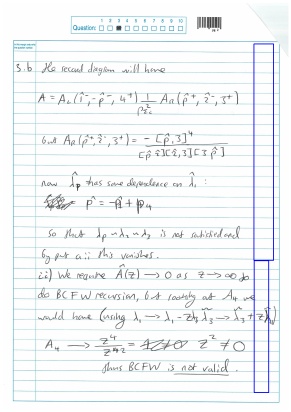 1 2 3 4 5 6 7 8 9 10
Question:
3.b The second diagram will have
A = A_L(1̂⁻, -p̂⁻, 4⁺) 1/P²_{23} A_R(p̂⁺, 2̂⁻, 3⁺)
but A_R(p̂⁺, 2̂⁻, 3⁺) = -[p̂, 3]⁴ / [p̂ 2̂][2̂, 3][3 p̂]
now λ̂_p has some dependence on λ̂_1 :
p̂ = -p̂_1 + p_4
so that λ_p ~ λ_2 ~ λ_3 is not satisfied and
by part a ii this vanishes.
ii) We require Â(z) → 0 as z → ∞ to
do BCFW recursion, but looking at A_4 we
would have (using λ_1 → λ_1 - zλ_3 λ̃_3 → λ̃_3 + zλ̃_1)
A_4 → z⁴/z² = z² ≠ 0
thus BCFW is not valid.